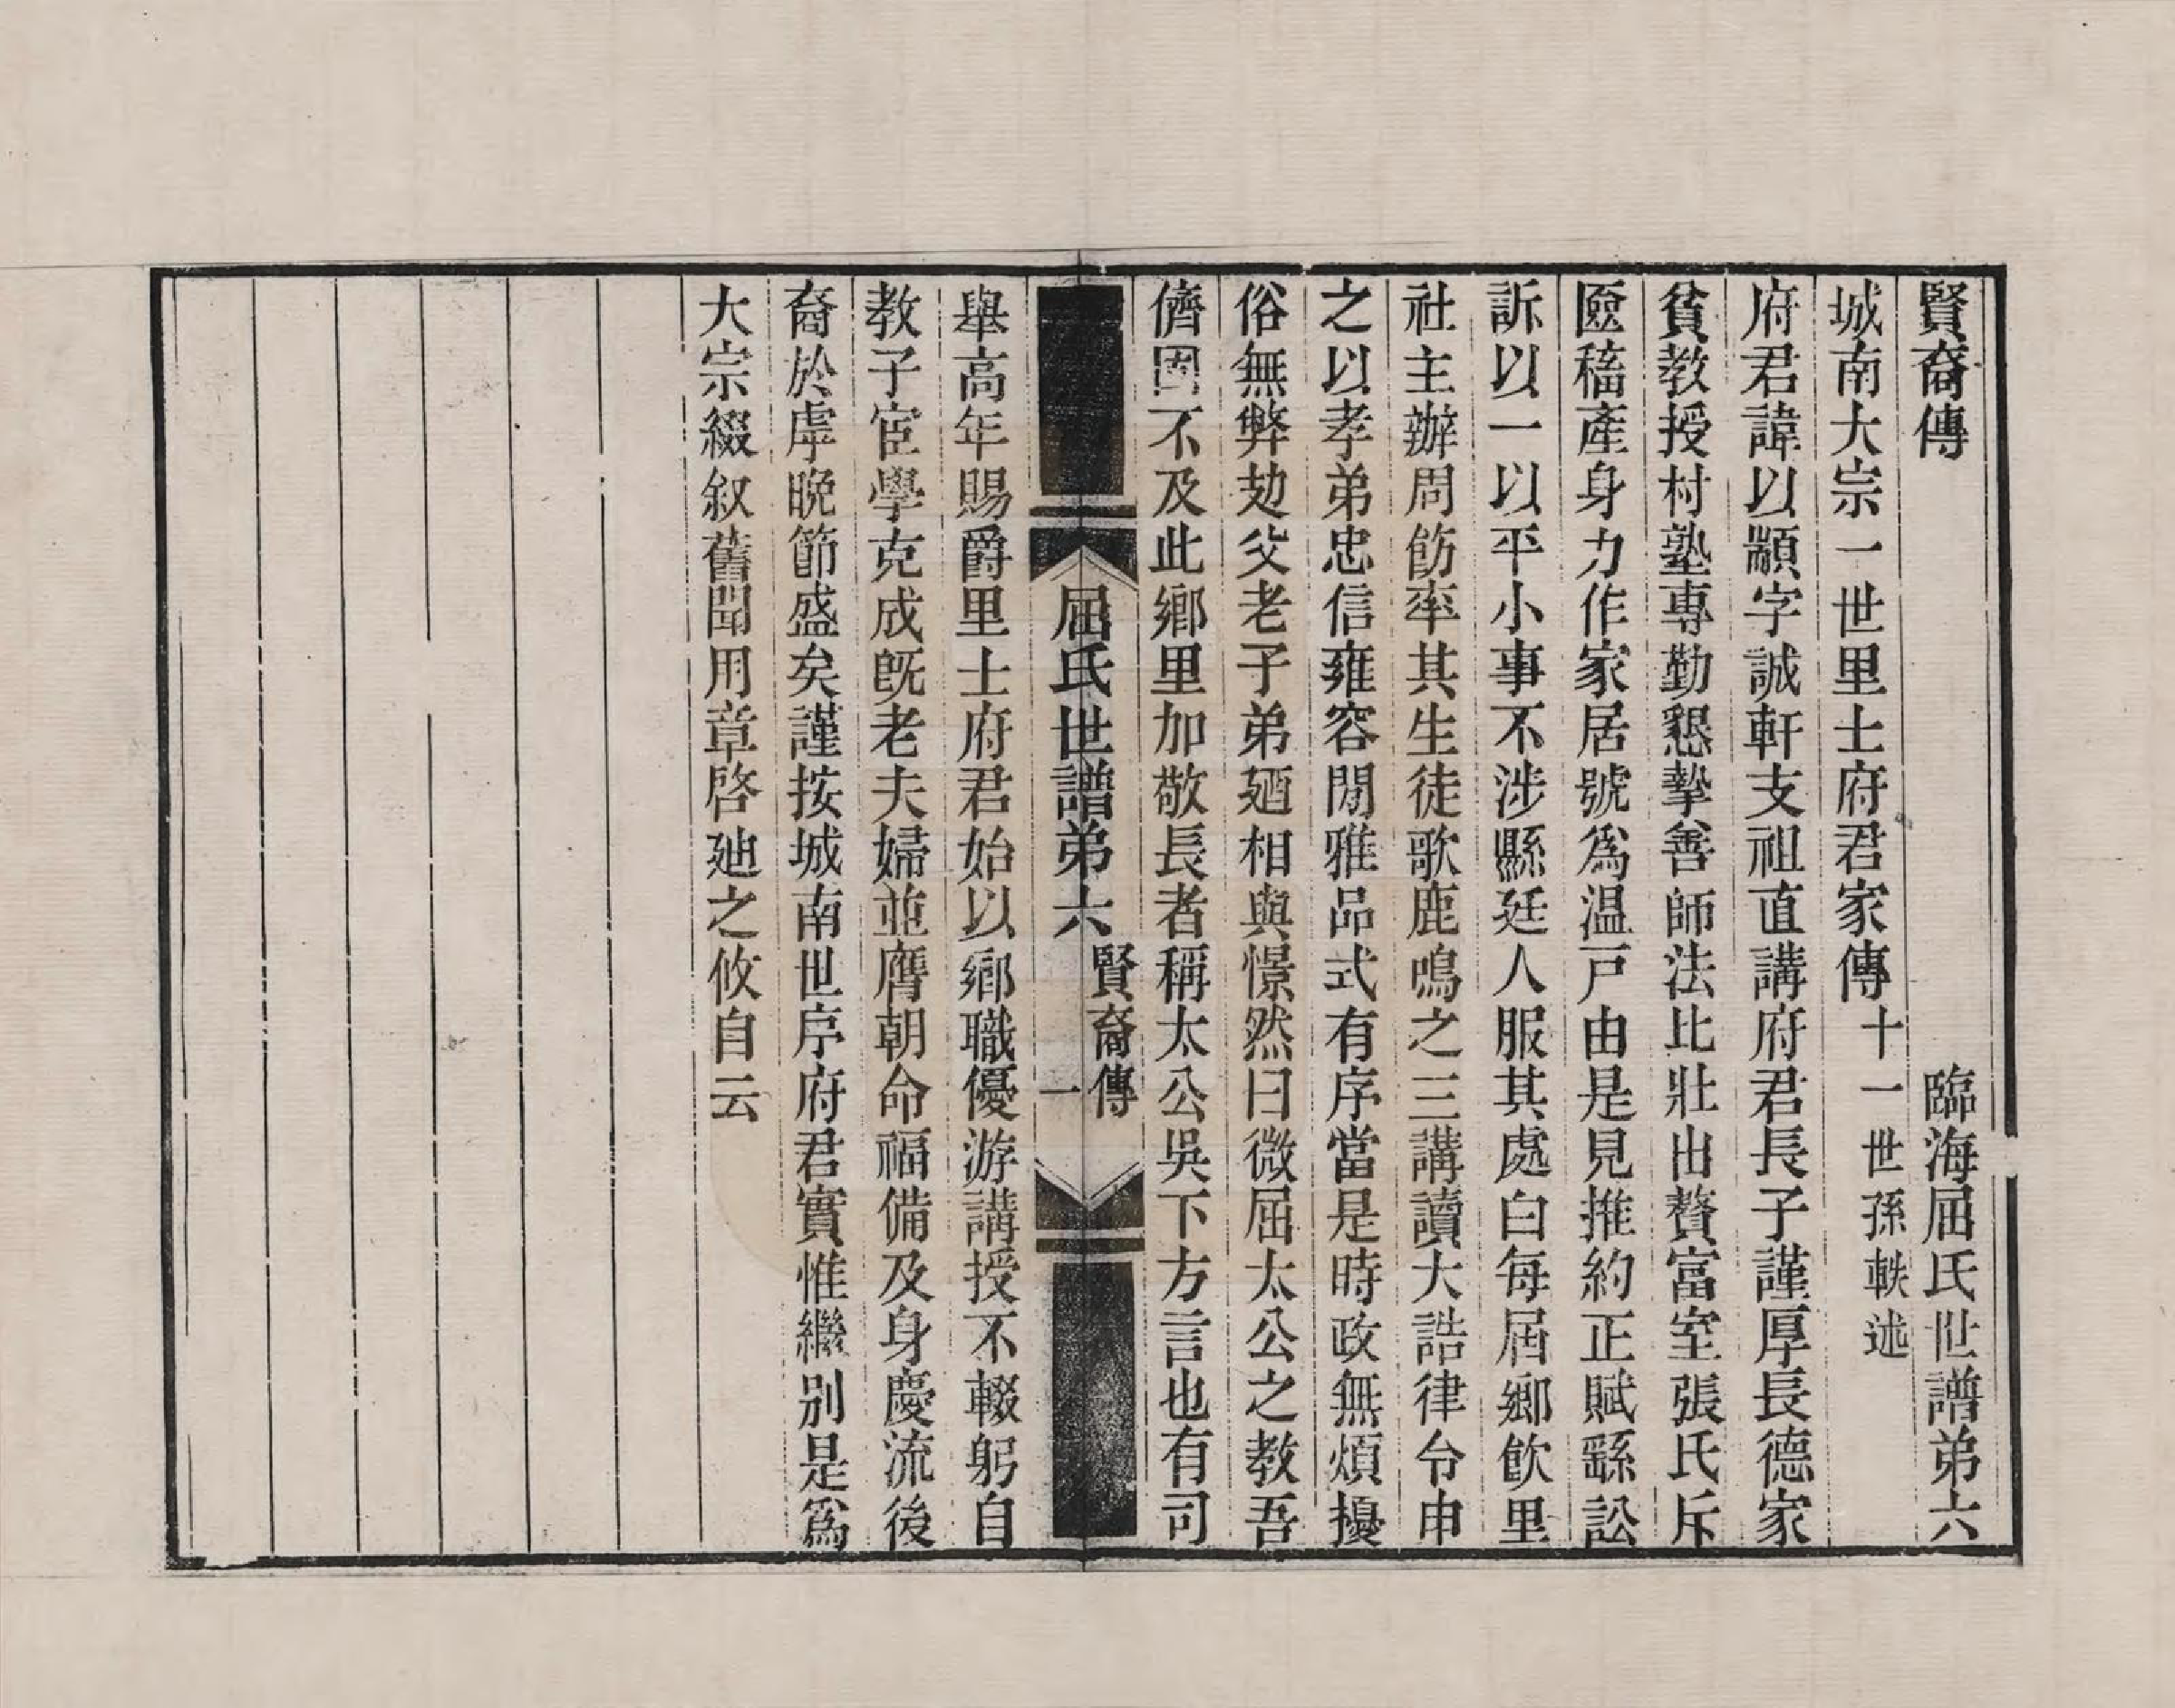 賢裔傳 臨海屈氏世譜弟六
城南大宗一世里士府君家傳 十一世孫軼述
府君諱以顓字誠軒支祖直講府君長子謹厚長德家
貧教授村塾專勤懇摯善師法比壯出贅富室張氏斥
匳穡產身力作家居號為温戸由是見推約正賦繇訟
訴以一以平小事不涉縣廷人服其處白每屆鄉飲里
社主辦周飭率其生徒歌鹿鳴之三講讀大誥律令申
之以孝弟忠信雍容閒雅品式有序當是時政無煩擾
俗無弊攰父老子弟廼相與憬然曰微屈太公之教吾
儕固不及此鄉里加敬長者稱太公吳下方言也有司
屈氏世譜弟六 賢裔傳 一
舉高年賜爵里士府君始以鄉職優游講授不輟躬自
教子宦學克成旣老夫婦並膺朝命福備及身慶流後
裔於虖晚節盛矣謹按城南世序府君實惟繼別是為
大宗綴叙舊聞用章啓廸之攸自云